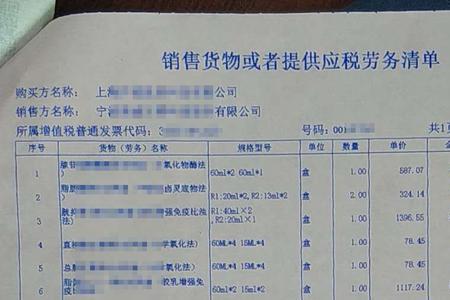 销售货物或者提供应税劳务清单
购买方名称: 上 公司
销售方名称: 宁 有限公司
所属增值税普通发票代码: 3 号码: 00 共1页
序号 货物（劳务）名称 规格型号 单位 数量 单价
1 腺苷 氧化物酶法) 60ml*2 60ml*1 盒 1.00 587.07
2 脂肪 卤灵底物法) R1:20ml*2, R2:13ml*2 盒 2.00 324.14
3 胱抑 强免疫比浊法) R1:40ml×2 ,R2:20ml×1 盒 1.00 1396.55
4 直接 学氧化法) 60ML*4 15ML*4 盒 1.00 78.45
5 总胆 氧化法) 60ML*4 15ML*4 盒 1.00 78.45
6 脂肪 胶乳增强免疫比 60ml*2 15ml*2 盒 1.00 1117.24